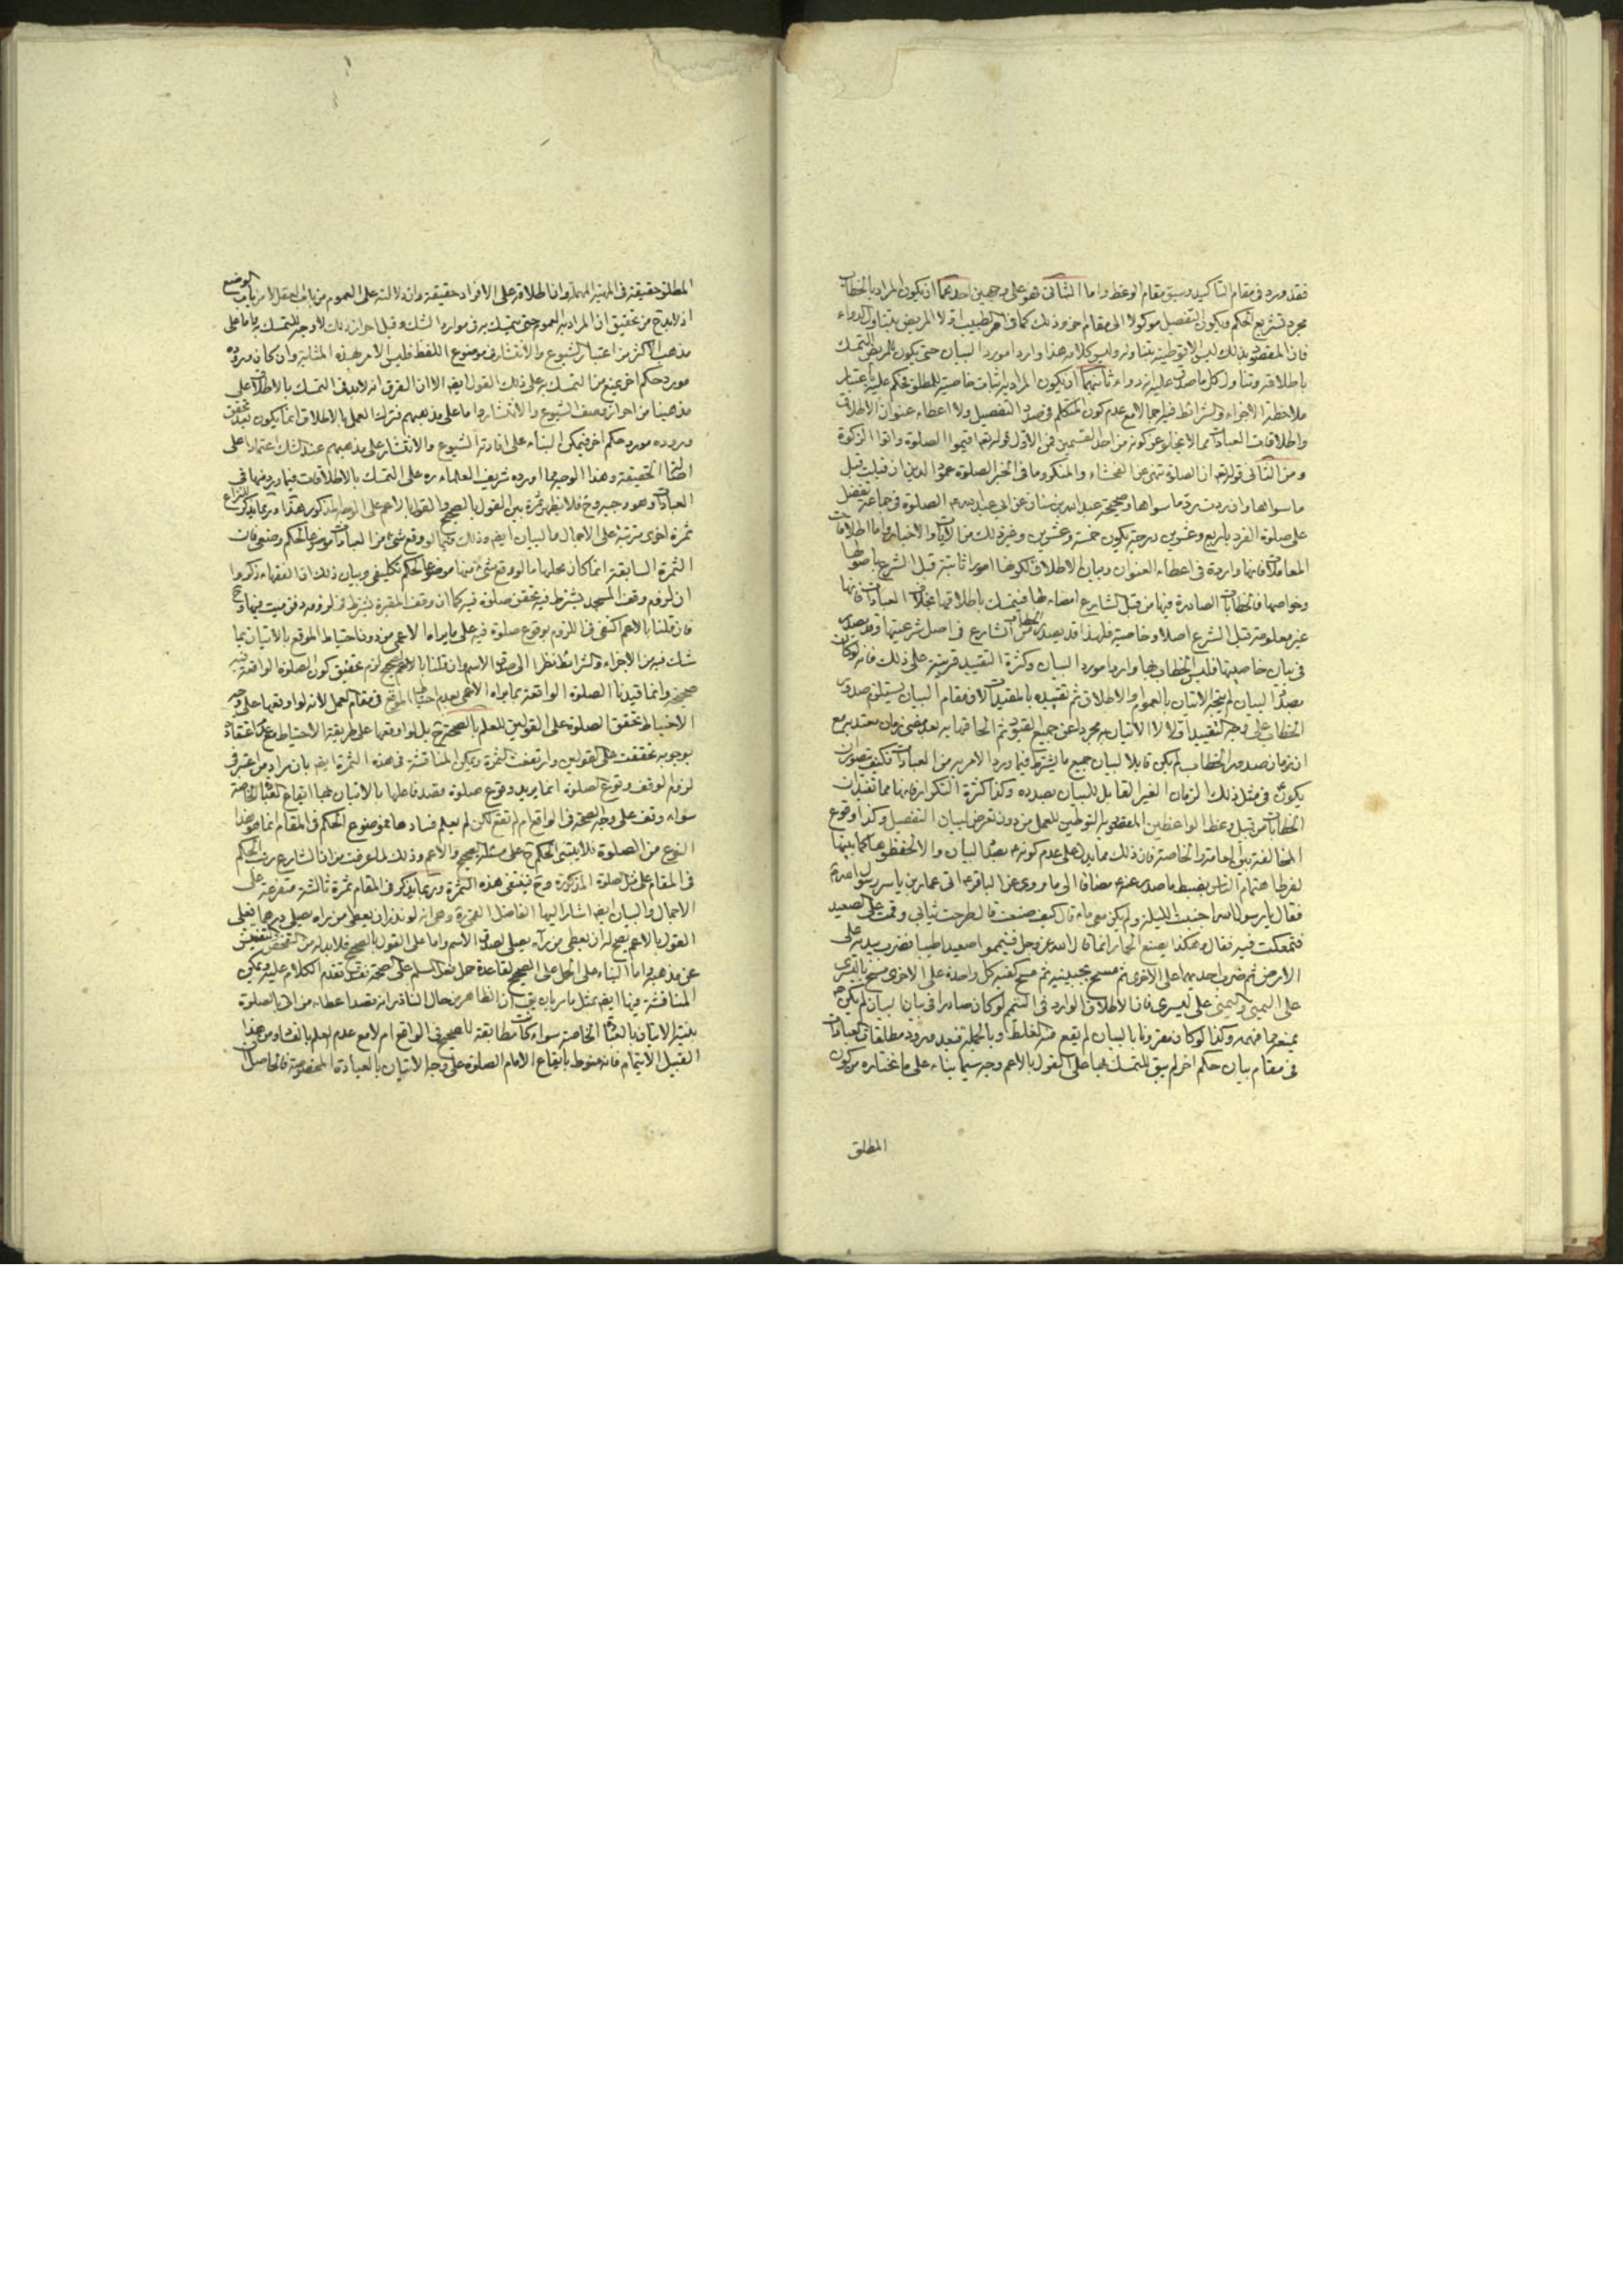 فقد ورد فى مقام التأكيد وسيق مقام الوعظ واما الثانى فهو على وجهين احدهما ان يكون المراد بالخطاب
مجرد تشريع الحكم ويكون التفصيل موكولا الى مقام اخر وذلك كما فى امر الطبيب اولا المريض بتناول الدواء
فان المقصود بذلك ليس الا توطينه بتناوله وليس كلامه هذا واردا مورد البيان حتى يكون للمريض التمسك
باطلاقه وتناول كل ما صدق عليه انه دواء ثانيهما ان يكون المراد اثبات خاصية للمطلق فيحكم عليه باعتبار
ملاحظة الاجزاء والشرائط فيه اجمالا مع عدم كون المتكلم فى صدد التفصيل ولا اعطاء عنوان الاطلاق
واطلاقات العبادات مما لا يخلو عن كونه من احد القسمين فمن الاول قوله تعالى اقيموا الصلوة واتوا الزكوة
ومن الثانى قوله تع ان الصلوة تنهى عن الفحشاء والمنكر وما فى الخبر الصلوة عمود الدين ان قبلت قبل
ما سواها وان ردت رد ما سواها وصحيحة عبد الله بن سنان عن ابى عبد الله ع الصلوة فى جماعة تفضل
على صلوة الفرد باربع وعشرين درجة تكون خمسة وعشرين وغير ذلك من الايات والاخبار واما اطلاقات
المعاملات فانها واردة فى اعطاء العنوان وبيان الاطلاق لكونها امورا ثابتة قبل الشرع باصولها
وخواصها فالخطابات الصادرة فيها من قبل الشارع امضاء لها فيتمسك باطلاقها بخلاف العبادات فانها
غير معلومة قبل الشرع اصلا وخاصية فلهذا قد يصدر الخطاب من الشارع فى اصل شرعيتها وقد يصدر
فى بيان خاصيتها فليس الخطاب بها واردا مورد البيان وكثرة التقييد قرينة على ذلك فانه لو كان
بصدد البيان لم يتجه الاتيان بالعموم والاطلاق ثم تقييده بالمقيدات لان مقام البيان يستلزم صدور
الخطاب على وجه التقييد اولا لا الاتيان به مجردا عن جميع القيود ثم الحاقها به بعد مضى زمان يعتد به مع
ان زمان صدور الخطاب لم يكن قابلا لبيان جميع ما يشترط فيما ورد الامر به من العبادات فكيف يتصور ان
يكون فى مثل ذلك الزمان الغير القابل للبيان بصدده وكذا كثرة التكرار فانها مما تفيد ان
الخطابات من قبيل وعظ الواعظين المقصود به التوطين للعمل من دون تعرض لبيان التفصيل وكذا وقوع
المخالفة بين العامة والخاصة فان ذلك مما يدل على عدم كونه ص بصدد البيان والا لحفظوها كما بينها
لفرط اهتمام الناس بضبط ما صدر عنه ع مضافا الى ما روى عن الباقر ع اتى عمار بن ياسر رسول الله ص
فقال يا رسول الله اجنبت الليلة ولم يكن معى ماء قال كيف صنعت قال طرحت ثيابى وقمت على الصعيد
فتمعكت فيه فقال هكذا يصنع الحمار انما قال الله عز وجل فتيمموا صعيدا طيبا فضرب بيديه على
الارض ثم ضرب احديهما على الاخرى ثم مسح بجبينيه ثم مسح كفيه كل واحدة على الاخرى مسح باليسرى
على اليمنى واليمنى على اليسرى فان الاطلاق الوارد فى التيمم لو كان صادرا فى بيان البيان لم يكن
يمنعهما فهمه وكذا لو كان مقرونا بالبيان لم يقع منه الغلط وبالجملة فبعد ورود مطلقات العبادات
فى مقام بيان حكم اخر لم يبق للتمسك بها على القول بالاعم وجه سيما بناء على ما نختاره من كون
المطلق
المطلق حقيقة فى المهية المهملة وان اطلاقه على الافراد حقيقة وان دلالته على العموم من باب العقل لا من باب الوضع
اذ لا بد ح من تحقيق ان المراد به العموم حتى يتمسك به فى موارد الشك وقبل احراز ذلك لا وجه للتمسك به واما على
مذهب الاكثر من اعتبار الشيوع والانتشار فى موضوع اللفظ فليس الامر بهذه المثابة وان كان وروده
مورد حكم اخر يمنع من التمسك به على ذلك القول ايضا الا ان الفرق انه لا بد فى التمسك بالاطلاق على
مذهبنا من احراز وصف الشيوع والانتشار واما على مذهبهم فترك العمل بالاطلاق انما يكون بعد تحقق
وروده مورد حكم اخر فيمكن البناء على افادة الشيوع والانتشار على مذهبهم عند الشك اعتمادا على
اصالة الحقيقة وهذا الوجه مما اورده شريف العلماء ره على التمسك بالاطلاقات فيما ورد منها فى
العبادات وهو وجيه وح فلا يظهر ثمرة بين القول بالصحيح والقول بالاعم على الوجه المذكور هذا وربما يذكر للنزاع
ثمرة اخرى مترتبة على الاجمال والبيان ايضا وذلك فيما لو وقع شىء من العبادات موضوعا لحكم وضعى فان
الثمرة السابقة انما كان محلها ما لو وقع شىء منها موضوعا لحكم تكليفى وبيان ذلك ان الفقهاء ذكروا
ان لزوم وقف المسجد يشترط فيه تحقق صلوة فيه كما ان وقف المقبرة يشترط فى لزومه دفن ميت فيها وح
فان قلنا بالاعم اكتفى فى اللزوم بوقوع صلوة فيه على ما يراه الاعمى من دون احتياط الموقع بالاتيان بما
شك فيه من الاجزاء والشرائط نظرا الى صدق الاسم وان قلنا بالصحيح لزم تحقيق كون الصلوة الواقعة فيه
صحيحة وانما قيدنا الصلوة الواقعة بما يراه الاعمى بعدم احتياط الموقع فى مقام العمل لانه لو اوقعها على وجه
الاحتياط تحقق الصلوة على القولين للعلم بالصحة ح بل لو اوقعها على طريقة الاحتياط مع عدم اعتقاده
بوجوبه تحققت على القولين وارتفعت الثمرة ويمكن المناقشة فى هذه الثمرة ايضا بان مراد من اعتبر فى
لزوم الوقف وقوع الصلوة انما يريد وقوع صلوة قصد فاعلها بالاتيان بها ايقاع العبادة الخاصة
سواء وقعت على وجه الصحة فى الواقع ام لم تقع لكن لم يعلم فسادها فموضوع الحكم فى المقام انما هو هذا
النوع من الصلوة فلا يبتنى الحكم ح على مسئلة الصحيح والاعم وذلك لما عرفت من ان الشارع رتب الحكم
فى المقام على مثل الصلوة المذكورة وح فينتفى هذه الثمرة وربما يذكر فى المقام ثمرة ثالثة متفرعة على
الاجمال والبيان ايضا اشار اليها الفاضل القمى ره وهى انه لو نذر ان يعطى من يراه يصلى درهما فعلى
القول بالاعم يصح له ان يعطى من رآه يصلى لصدق الاسم واما على القول بالصحيح فلا بد له من التفحص والتفتيش
عن مذهبه واما البناء على الحمل على الصحيح لقاعدة حمل فعل المسلم على الصحة فقد تقدم الكلام عليه ويمكن
المناقشة فيها ايضا بمثل ما مر بان يقال ان الظاهر من حال الناذر انه قصد اعطاء من اتى بالصلوة
بنية الاتيان بالعبادة الخاصة سواء كانت مطابقة للصحيح فى الواقع ام لا مع عدم العلم بالفساد ومن هذا
القبيل الايتمام فانه منوط بايقاع الامام الصلوة على وجه الاتيان بالعبادة المخصوصة فالحاصل